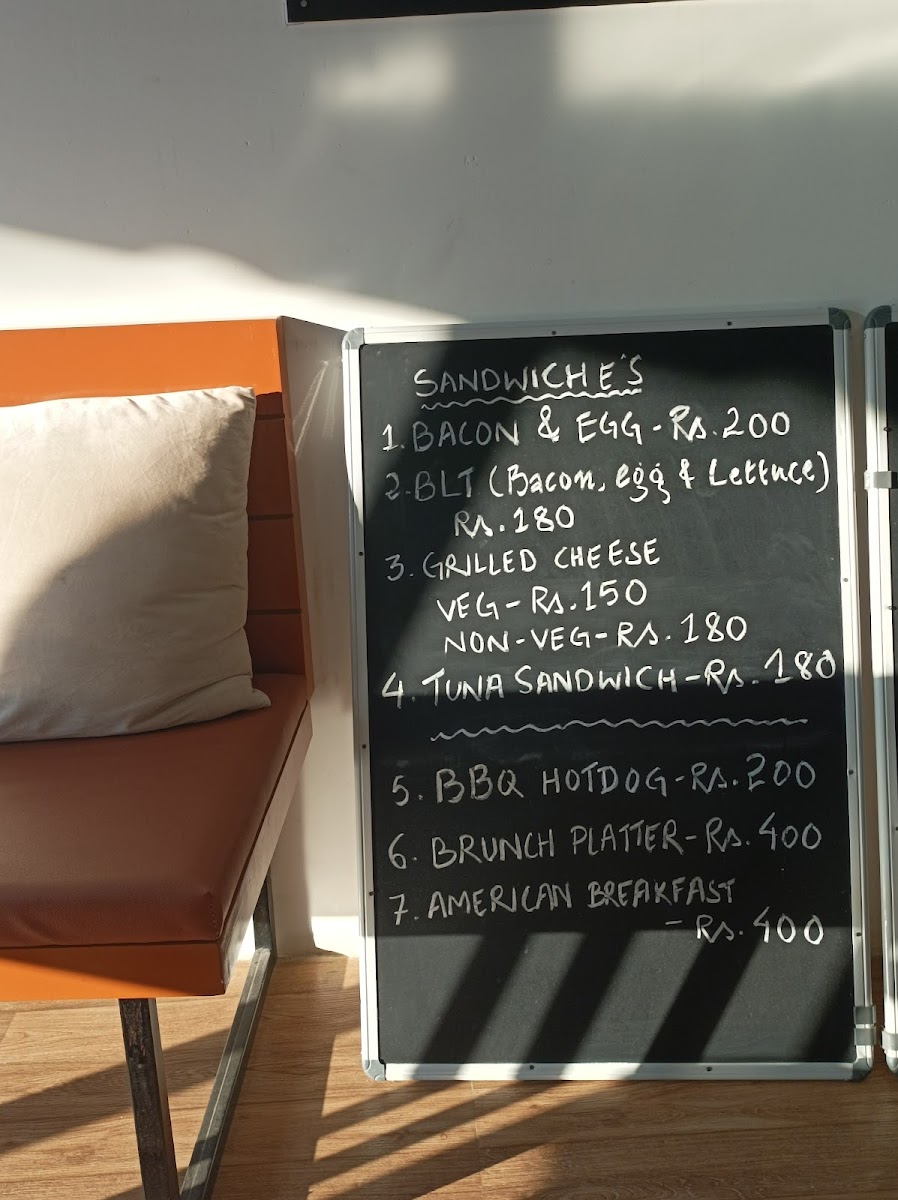 SANDWICHE'S
1. BACON & EGG - Rs. 200
2. BLT (Bacon, egg & Lettuce)
Rs. 180
3. GRILLED CHEESE
VEG - Rs. 150
NON-VEG - Rs. 180
4. TUNA SANDWICH - Rs. 180
5. BBQ HOTDOG - Rs. 200
6. BRUNCH PLATTER - Rs. 400
7. AMERICAN BREAKFAST
- Rs. 400